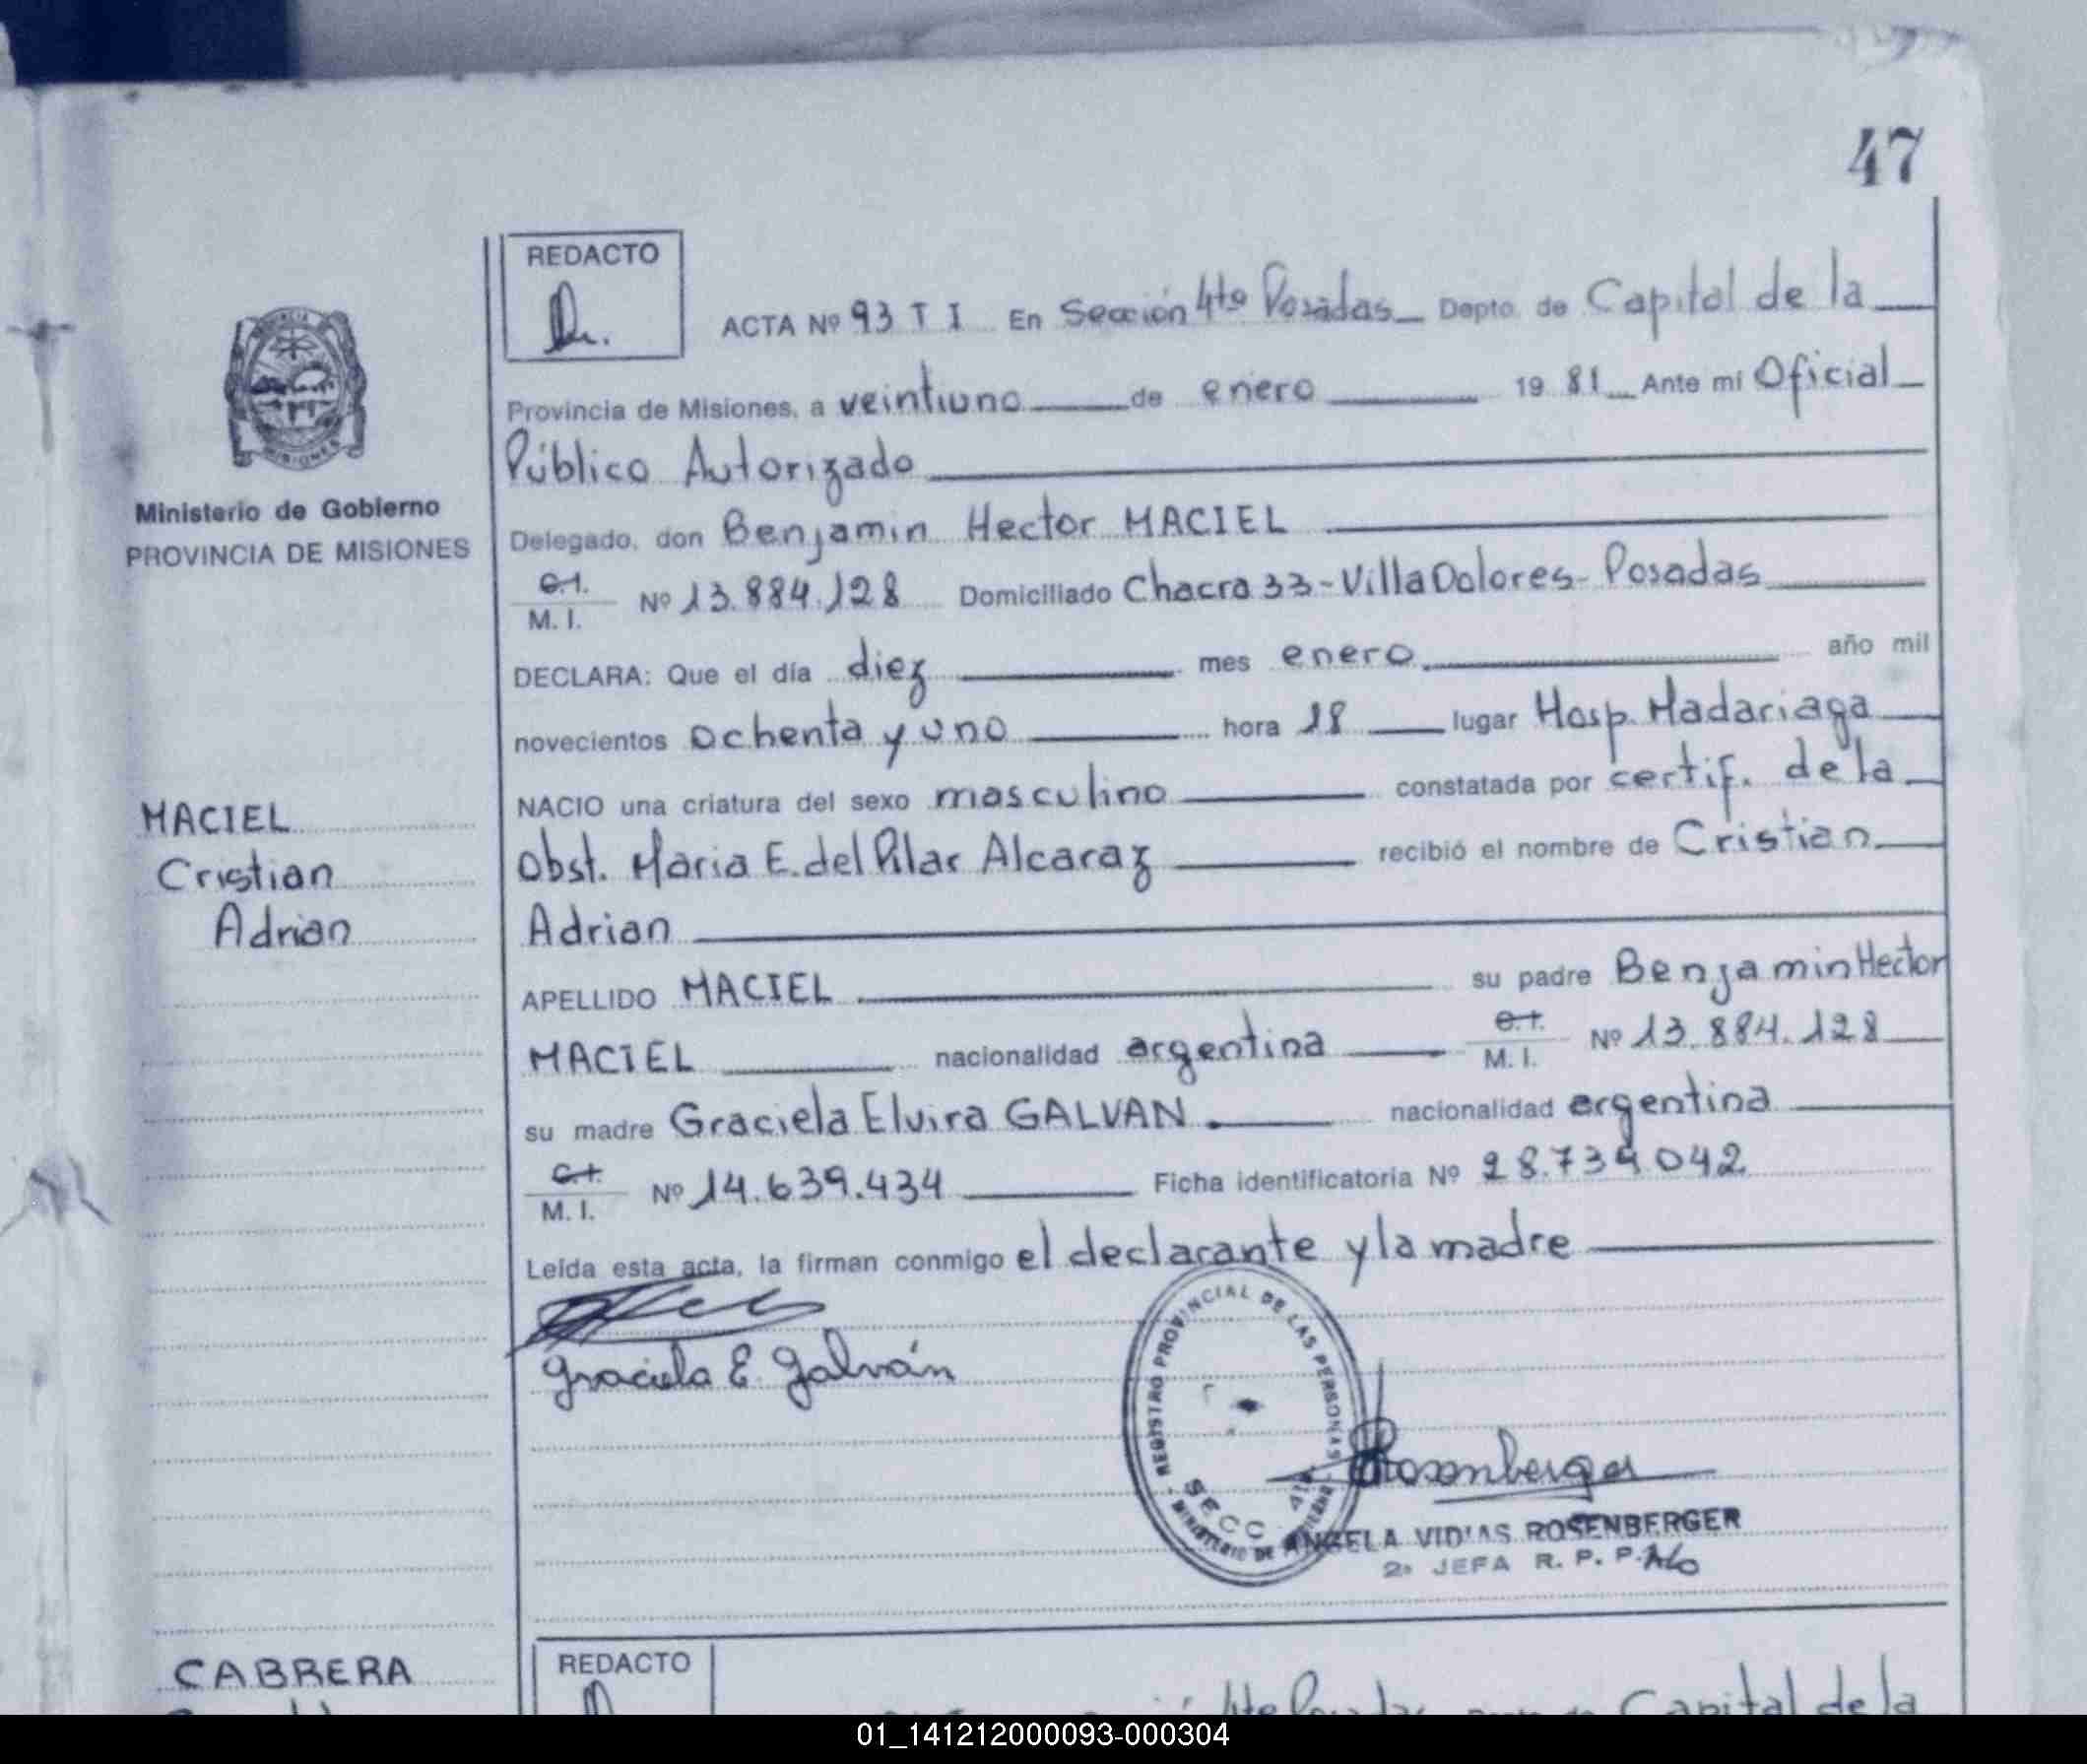 47
REDACTO
ACTA Nº 93 T I En Sección 4ta Posadas Depto. de Capital de la
Provincia de Misiones, a veintiuno de enero 19 81 Ante mí Oficial
Público Autorizado
Ministerio de Gobierno
PROVINCIA DE MISIONES
Delegado, don Benjamin Hector MACIEL
C.I.
M. I. Nº 13.884.128 Domiciliado Chacra 33-Villa Dolores- Posadas
DECLARA: Que el día diez mes enero año mil
novecientos ochenta y uno hora 18 lugar Hosp. Madariaga
NACIO una criatura del sexo masculino constatada por certif. de la
MACIEL
Cristian
Adrian
Obst. Maria E. del Pilar Alcaraz recibió el nombre de Cristian
Adrian
APELLIDO MACIEL su padre Benjamin Hector
MACIEL nacionalidad argentina C.I. M. I. Nº 13.884.128
su madre Graciela Elvira GALVAN nacionalidad argentina
C.I.
M. I. Nº 14.639.434 Ficha identificatoria Nº 28.734.042
Leída esta acta, la firman conmigo el declarante y la madre
Graciela E. Galván
REGISTRO PROVINCIAL DE LAS PERSONAS
SECC 4ta
MINISTERIO DE GOBIERNO
Rosenberger
ANGELA VIDIAS ROSENBERGER
2ª JEFA R. P. P.
CABRERA
REDACTO
4ta Posadas Capital de la
01_141212000093-000304